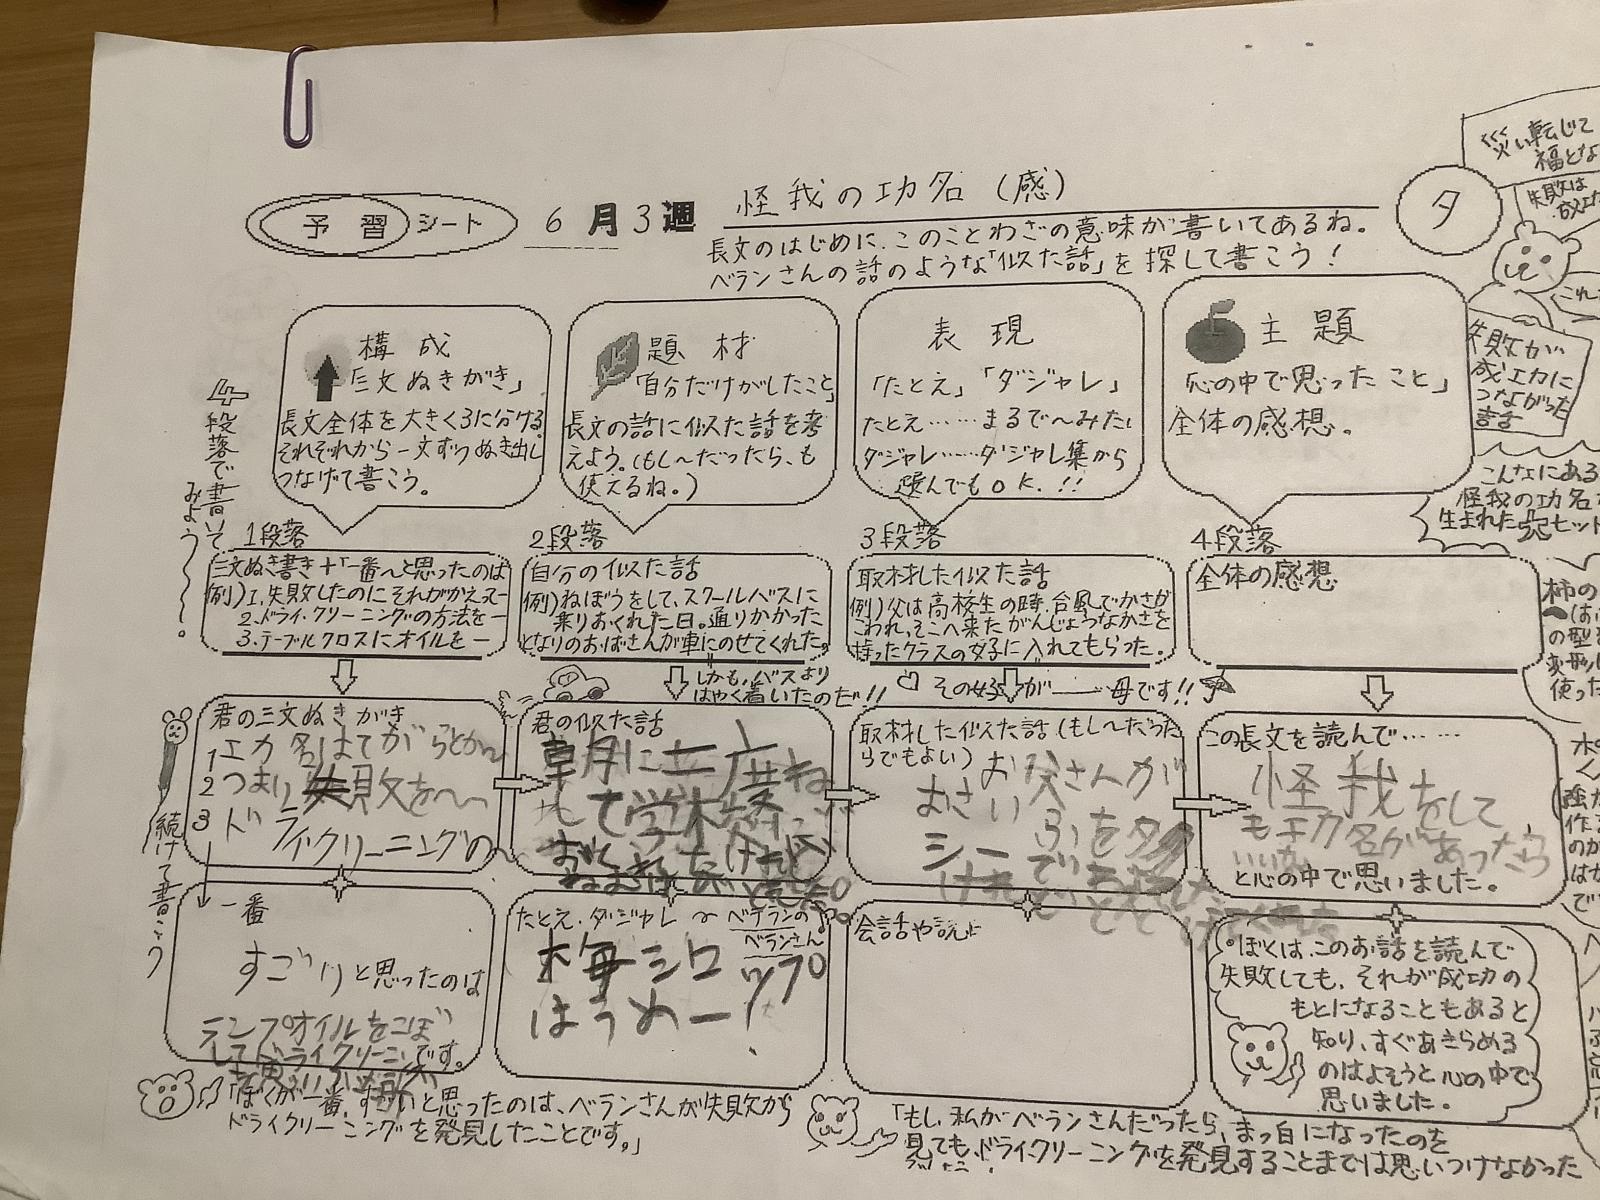 予習シート 6月3週 怪我の功名(感)
タ
長文のはじめに、このことわざの意味が書いてあるね。
ベランさんの話のような「似た話」を探して書こう!
災い転じて
福とな
失敗は
これ
失敗が
成功に
つながった
話
こんなにある
怪我の功名
生まれた
4段落で書いてみよう〜〜。
構成
「三文ぬきがき」
長文全体を大きく3に分ける。
それぞれから一文ずつぬき出し
つなげて書こう。
題材
「自分だけがしたこと」
長文の話に似た話を考
えよう。(もし〜だったら、も
使えるね。)
表現
「たとえ」「ダジャレ」
たとえ……まるで〜みたい
ダジャレ……ダジャレ集から
選んでもOK.!!
主題
「心の中で思ったこと」
全体の感想。
1段落
三文ぬき書き+「一番〜と思ったのは
例)1.失敗したのにそれがかえって
2.ドライクリーニングの方法を一
3.テーブルクロスにオイルを一
2段落
自分の似た話
例)ねぼうをして、スクールバスに
乗りおくれた日。通りかかった
となりのおばさんが車にのせてくれた。
しかも、バスより
はやく着いたのだ!!
3段落
取材した似た話
例)父は高校生の時、台風でかさが
こわれ、そこへ来たがんじょうなかさを
持ったクラスの女子に入れてもらった。
その女子が――母です!!
4段落
全体の感想
柿の
の型
変形
使った
君の三文ぬきがき
1 功名はてがらとか〜
2 つまり失敗を〜
3 ドライクリーニングの
続けて書こう
君の似た話
取材した似た話(もし〜だった
らでもよい)
お父さんが
おさいふをタク
シーで
けれど
この長文を読んで……
怪我をして
も功名があったら
いいな
と心の中で思いました。
一番
すごいと思ったのは
ランプオイルをこぼ
して
ドライクリーニングです。
たとえ、ダジャレ 〜ベテランの
ベランさん
梅シロップ
はうめー!
会話や説
ぼくは、このお話を読んで
失敗しても、それが成功の
もとになることもあると
知り、すぐあきらめる
のはよそうと心の中で
思いました。
「ぼくが一番、すごいと思ったのは、ベランさんが失敗から
ドライクリーニングを発見したことです。」
「もし、私がベランさんだったら、まっ白になったのを
見ても、ドライクリーニングを発見することまでは思いつけなかった